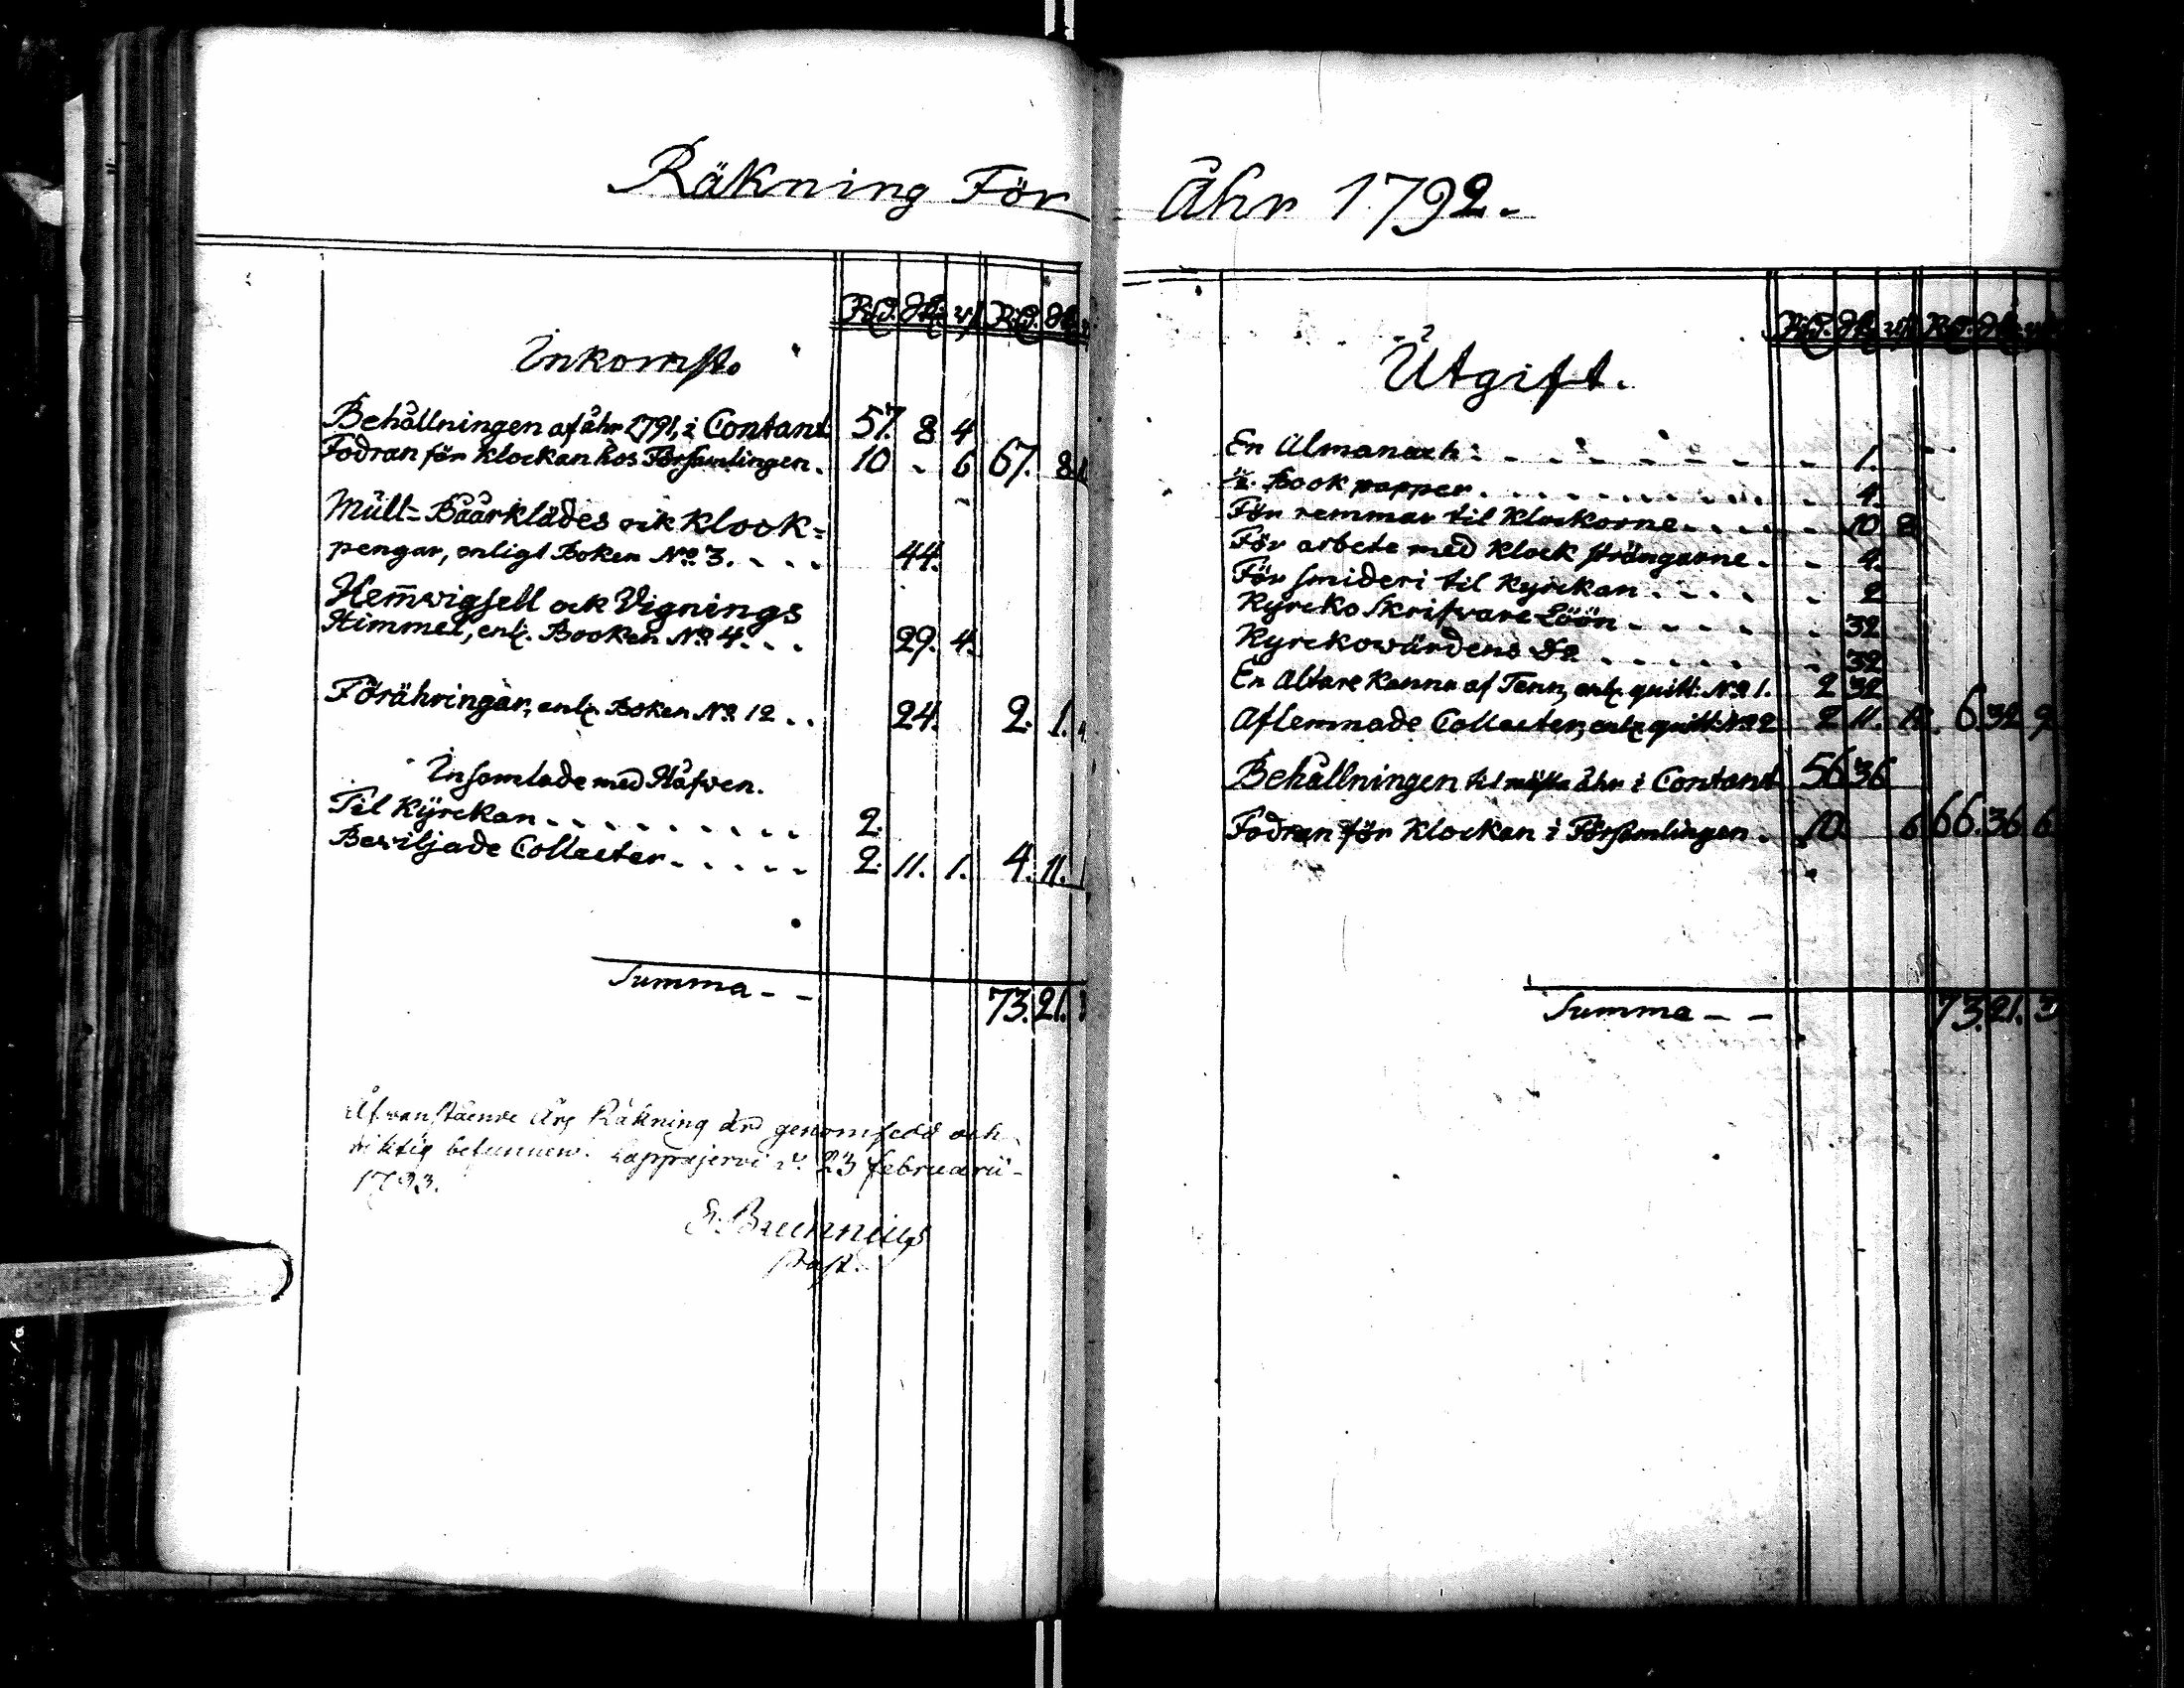 Räkning För
Rd. sk. r. Rd. sk.
Inkomst.
Behållningen af åhr 1791, i Contant 57. 8 4
Fodran för Klockan hos Församlingen. 10 - 6 67. 8
Mull= Båårklädes ock Klock=
pengar, enligt Boken No. 3. - - - 44.
Hem̅vigsell ock Vignings
Himmel, enl. Booken No. 4. - - 29. 4.
Föråhringar, enl. Boken No. 12 - - 24. 2. 1. 4.
Insamlade med Håfven.
Til Kyrckan - - - - - - - - - 2.
Beviljade Collecter - - - - - 2. 11. 1. 4. 11. 1
Summa - - 73. 21.
Åfvanstående Års Räkning är genomsedd och
riktig befunnen. Lappajervi d. 23 februarii
1793.
E. Brunnius
Past.
Åhr 1792.
Rd. sk. r. Rd. sk. r.
Utgift.
En Almanach - - - - - - - 1.
½. Book papper - - - - - - - 4.
För remmar til Klockorne - - - - 10 8
För arbete med Klock strängarne - - 4.
För smideri til Kyrckan - - - - - 2
Kyrcko Skrifvare Löön - - - - - 32
Kyrckowärdens Do - - - - - 32
En Altare Kanna af Tenn, enl. quitt. No. 1. 2 32
Aflemnade Collecter, enl. quitt. No. 2 2 11. 1. 6. 32 9
Behållningen til nästa åhr i Contant 56 36
Fodran för Klockan i Församlingen. 10. 6 66. 36 6
Summa - - 73. 21. 3